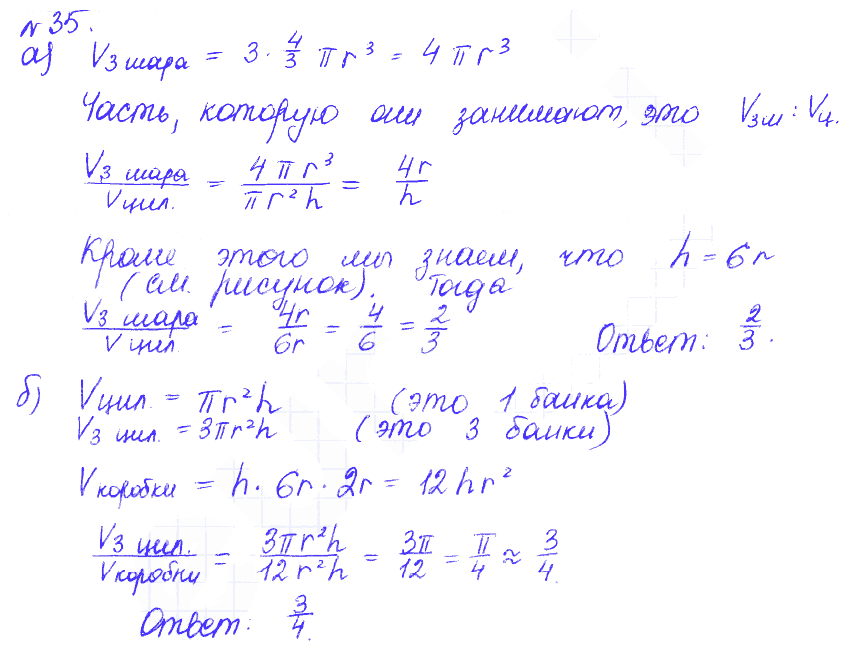 №35.
а) V3 шара = 3 · 4/3 πr³ = 4πr³
Часть, которую они занимают, это V3ш : Vц.
V3 шара / Vцил. = 4πr³ / πr²h = 4r / h
Кроме этого мы знаем, что h = 6r
(см. рисунок). Тогда
V3 шара / Vцил. = 4r / 6r = 4/6 = 2/3 Ответ: 2/3.
б) Vцил. = πr²h (это 1 банка)
V3 цил. = 3πr²h (это 3 банки)
Vкоробки = h · 6r · 2r = 12hr²
V3 цил. / Vкоробки = 3πr²h / 12r²h = 3π/12 = π/4 ≈ 3/4.
Ответ: 3/4.